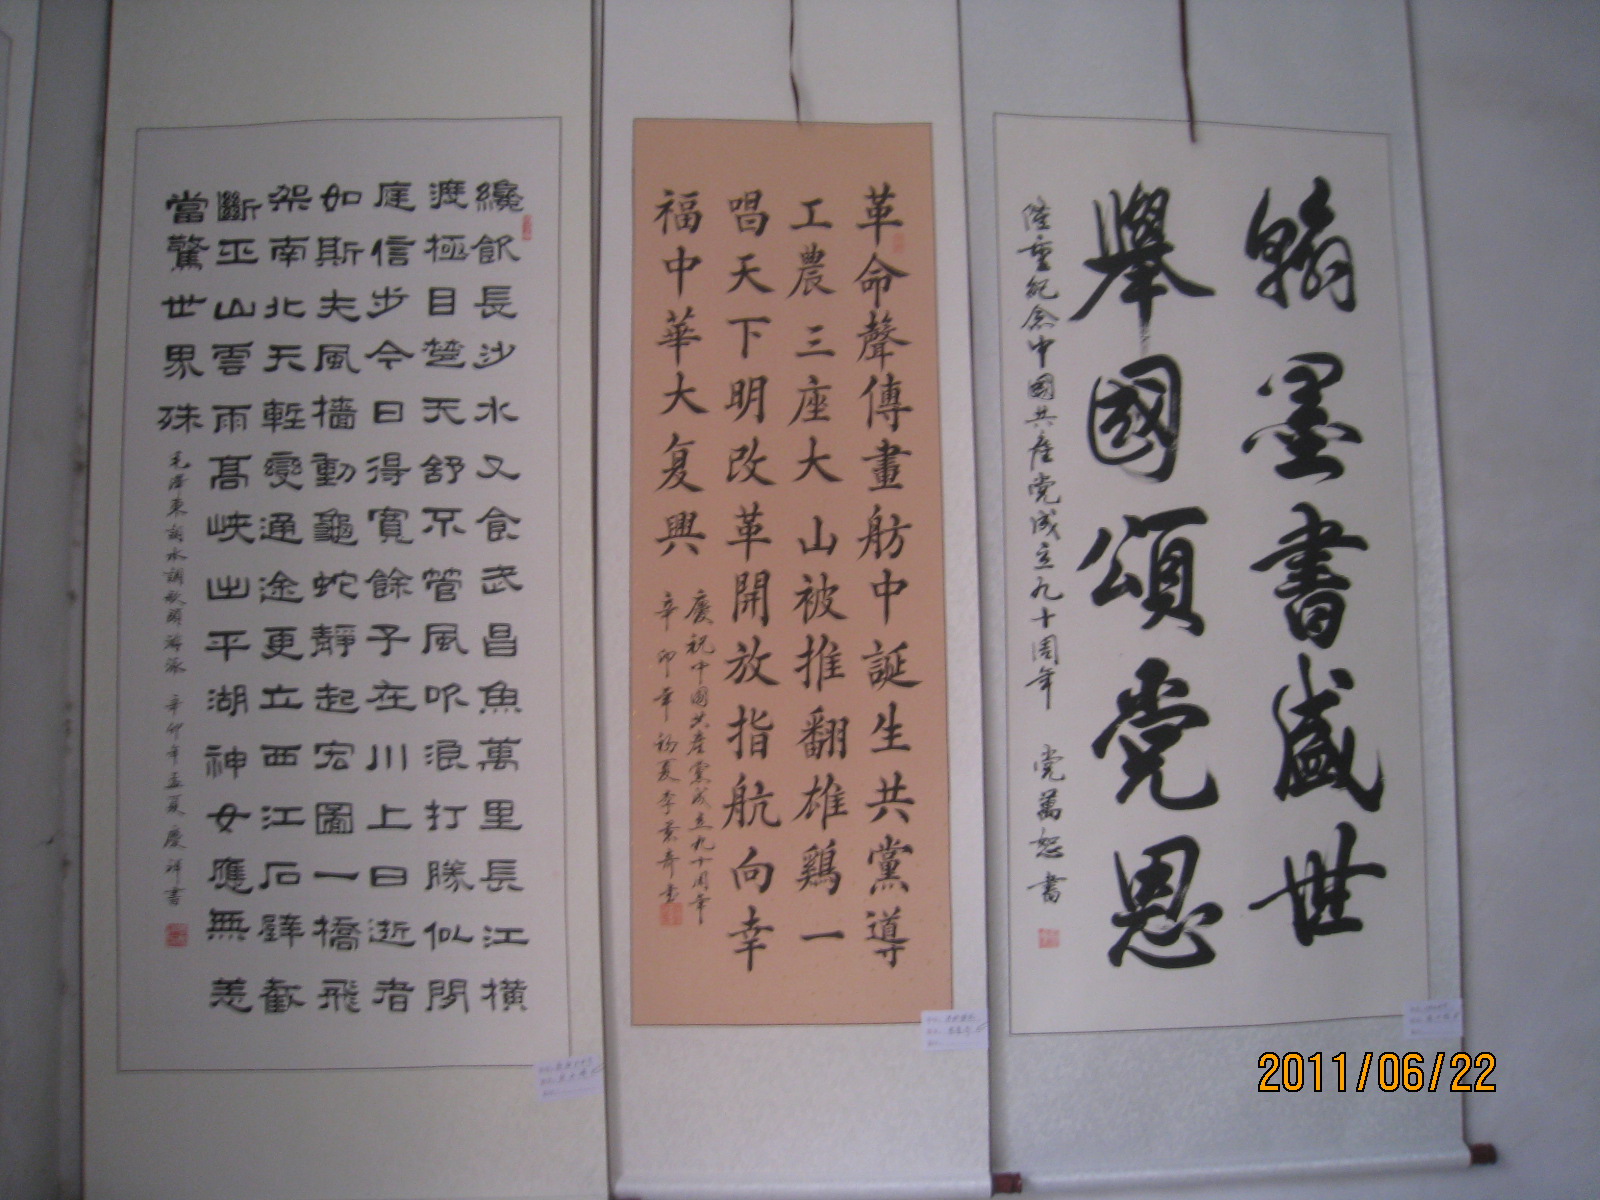 翰墨書盛世
舉國頌党恩
隆重紀念中國共產党成立九十周年 党萬恕書
革命聲傳畫舫中誕生共黨導
工農三座大山被推翻雄鷄一
唱天下明改革開放指航向幸
福中華大复興
慶祝中國共產黨成立九十周年
辛卯年初夏李書
纔飲長沙水又食武昌魚萬里長江橫
渡極目楚天舒不管風吹浪打勝似閒
庭信步今日得寬餘子在川上曰逝者
如斯夫風檣動龜蛇靜起宏圖一橋飛
架南北天塹變通途更立西江石壁截
斷巫山雲雨高峽出平湖神女應無恙
當驚世界殊
毛澤東詞水調歌頭游泳 辛卯年孟夏慶祥書
2011/06/22